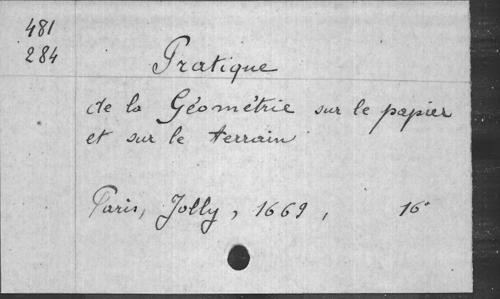 481
284
Pratique
de la Géométrie sur le papier
et sur le terrain
Paris, Jolly, 1669, 16°